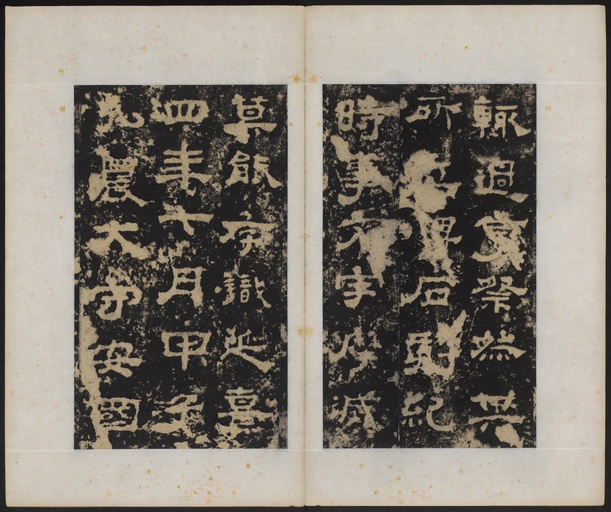 輒過享祭然其
所立碑石刻紀
時事文字摩滅
莫能存識延熹
四年七月甲子
弘農大守安國